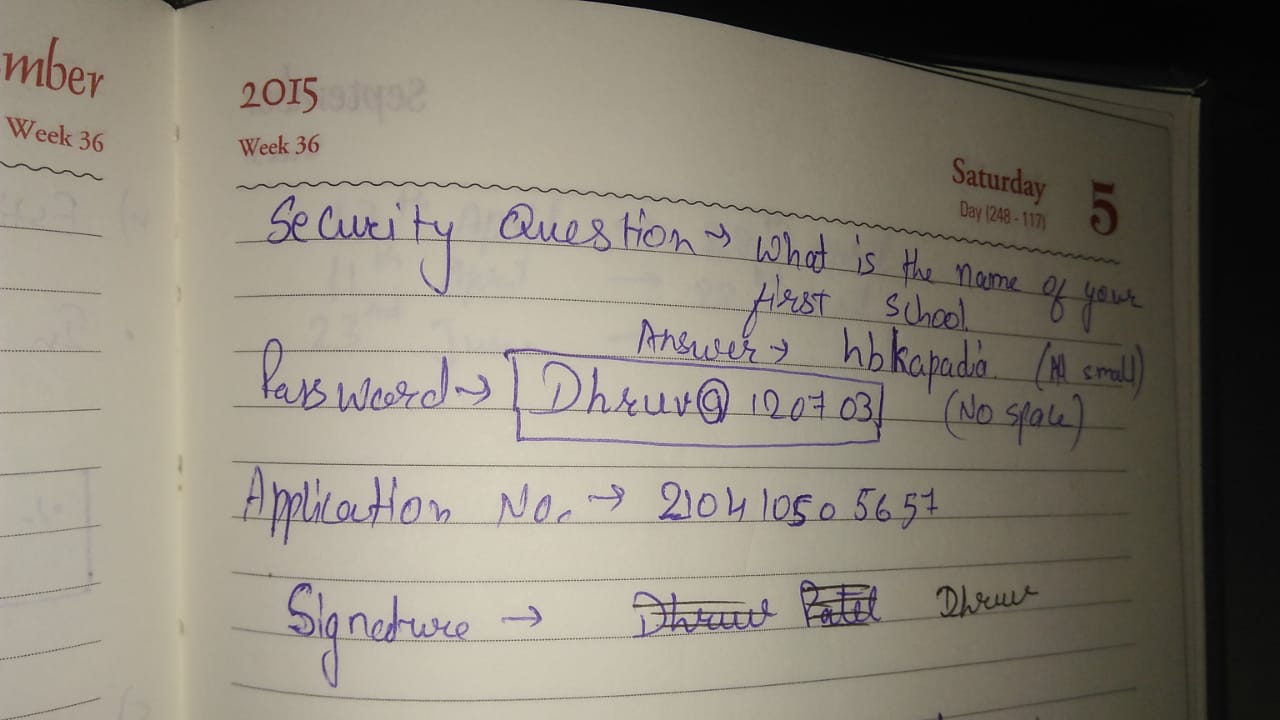 mber
Week 36
2015
Week 36
Saturday
Day (248 - 117)
5
Security Question → What is the name of your
first school
Answer → hbkapadia. (All small)
Password → Dhruv@120703 (No space)
Application No. → 210410505657
Signature → Dhruv Patel Dhruv